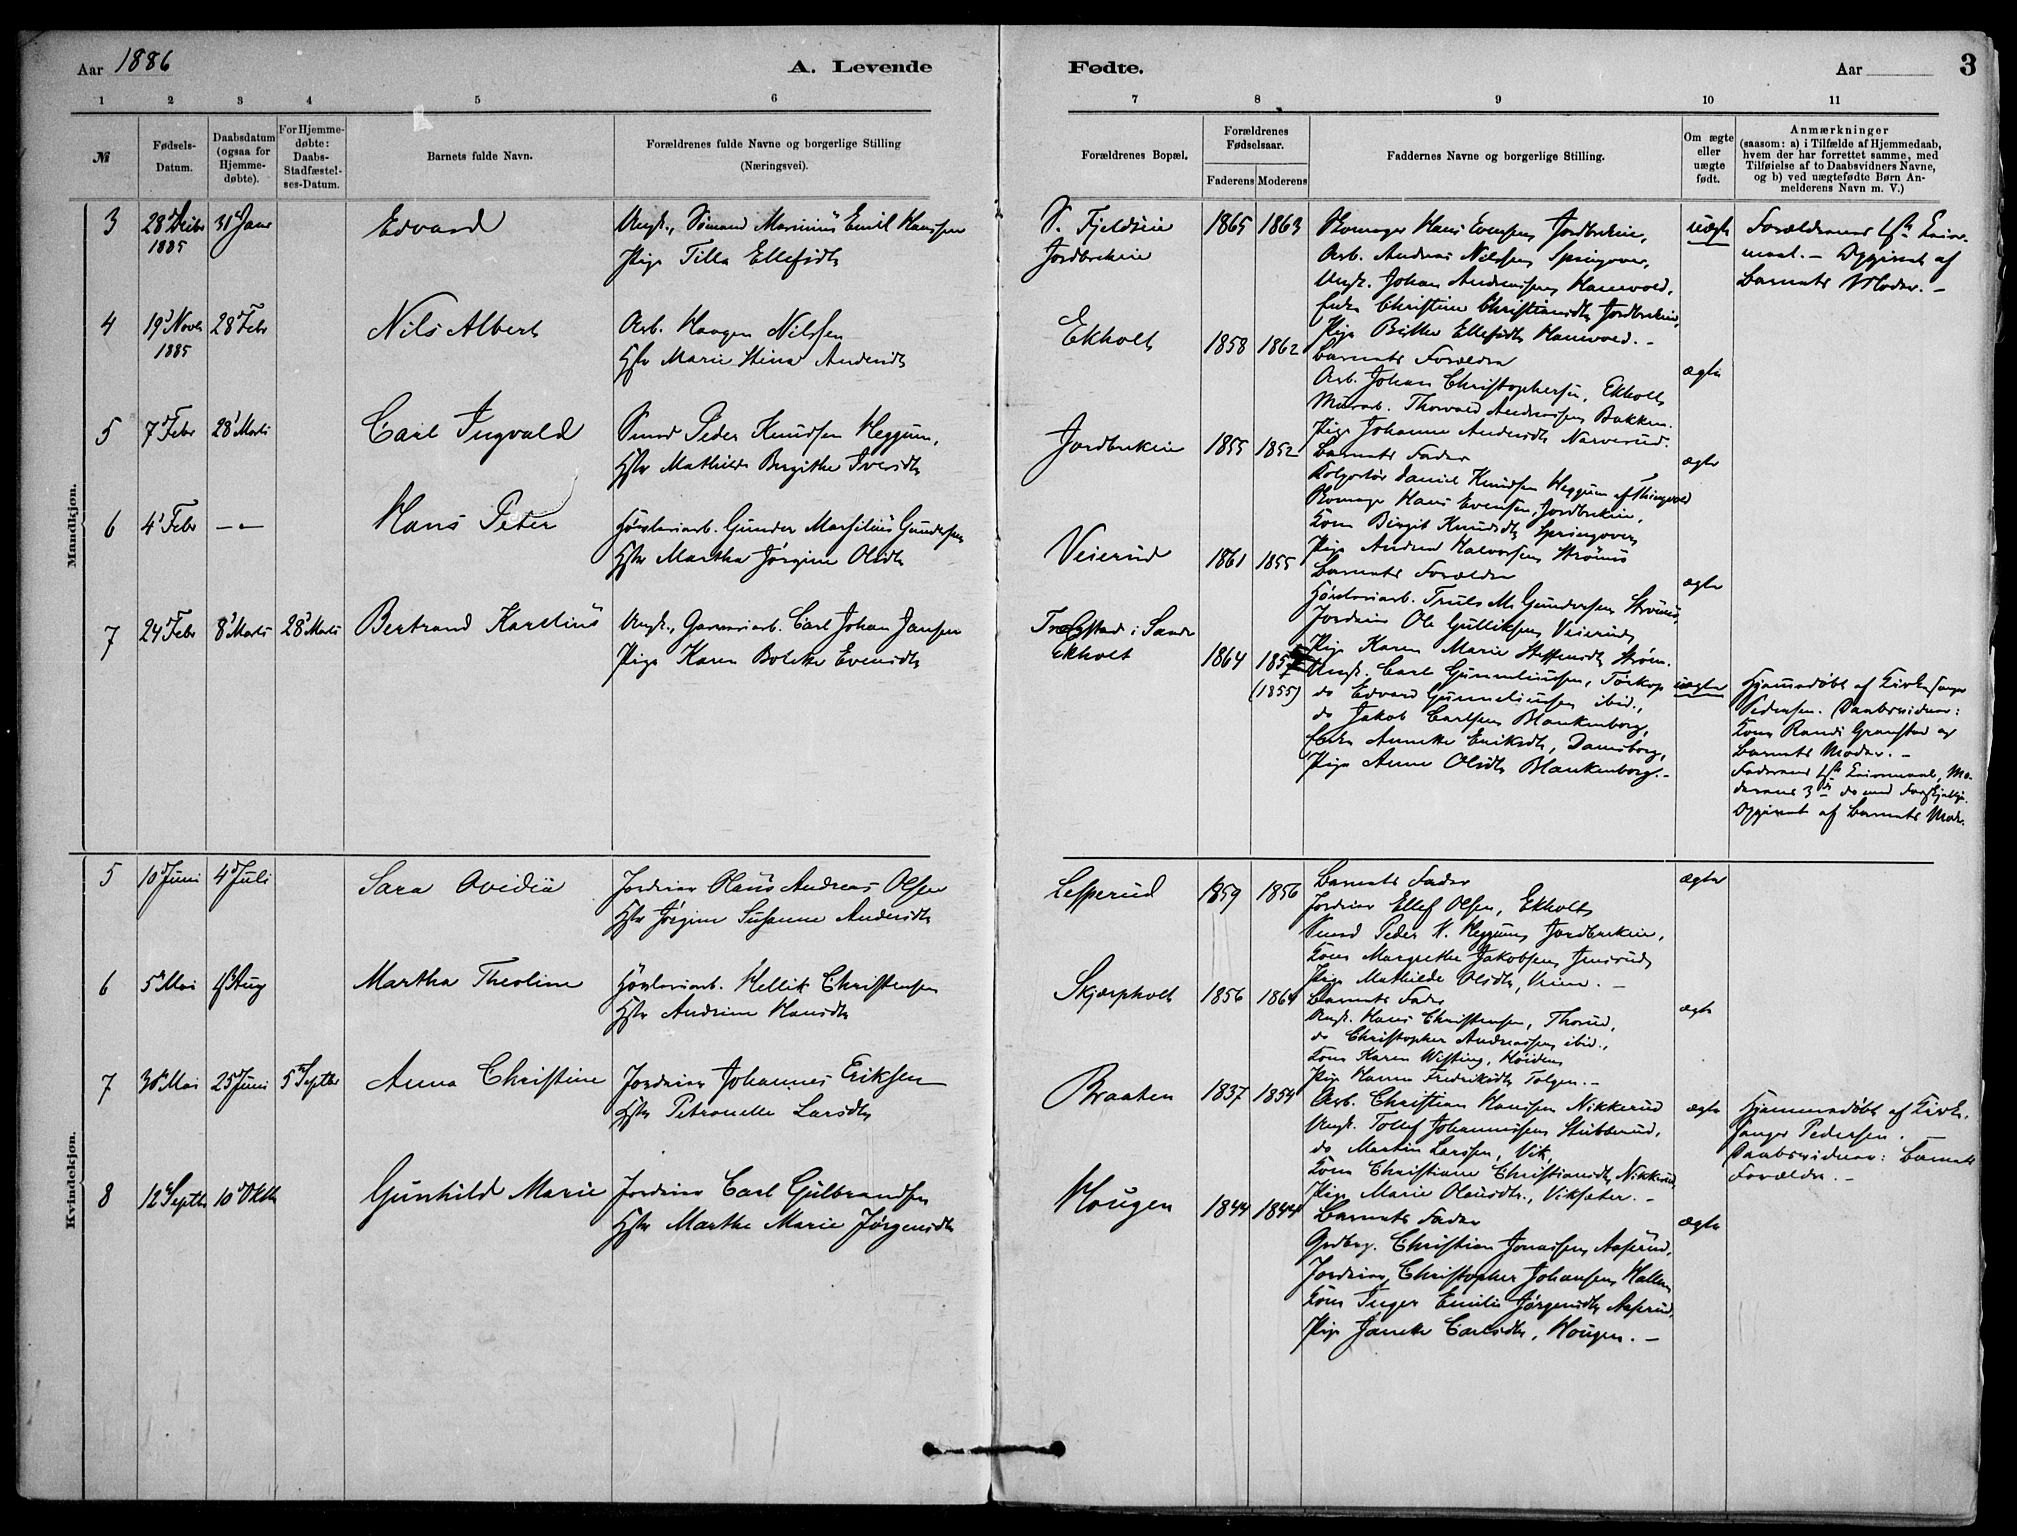 Aar 1886
A. Levende
Fødte.
Aar
3
1 2 3 4 5 6
7 8 9 10 11
№
Fødsels-
Datum.
Daabsdatum
(ogsaa for
Hjemme-
døbte).
For Hjemme-
døbte:
Daabs-
Stadfæstel-
ses-Datum.
Barnets fulde Navn.
Forældrenes fulde Navne og borgerlige Stilling
(Næringsvei).
Forældrenes Bopæl.
Forældrenes
Fødselsaar.
Faderens Moderens
Faddernes Navne og borgerlige Stilling.
Om ægte
eller
uægte
født.
Anmærkninger
(saasom: a) i Tilfælde af Hjemmedaab,
hvem der har forrettet samme, med
Tilføielse af to Daabsvidners Navne,
og b) ved uægtefødte Børn An-
melderens Navn m. V.)
Mandkjøn.
3
28 Decbr
1885
31 Janr
Edvard
Ungk., Sømand Marinius Emil Hanssen
Pige Tilla Ellefsdtr
S. Fjeldseie
Jordbrekeie
1865 1863
Hans Evensen Jordbrekeie,
Arb. Andreas Nilssen Springover,
Ungk. Johan Andreassen Hanevold,
Christine Christiansdtr Jordbrekeie,
Pige Birthe Ellefsdtr Hanevold. -
uægte
Forældrenes 1ste Leier-
maal. - Opgivet af
Barnets Moder. -
4
19 Novbr
1885
28 Febr
Nils Albert
Arb. Haagen Nilssen
Hstr Marie Stina Andersdtr
Ekholt
1858 1862
Barnets Forældre
Arb. Johan Christophersen, Ekholt
Murarb. Thorvald Andreassen Bakken.
Pige Johanne Andersdtr Narverud.
ægte
5
7 Febr
28 Marts
Carl Ingvald
Smed Peder Knudsen Heggum,
Hstr Mathilde Birgithe Iversdtr
Jordbrekeie
1855 1852
Barnets Fader
Kolportør Daniel Knudsen Heggum af Thingvold
Hans Evensen, Jordbrekeie,
Kone Birgit Knudsdtr Springover
Pige Andrea Halvorsen Strømus
ægte
6
4 Febr
— " —
Hans Peter
Høvleriarb. Gunder Marselius Gundersen
Hstr Martha Jørgine Olsdtr
Veierud
1861 1855
Barnets Forældre
Høvleriarb. Truls M. Gundersen Strømus,
Jordeier Ole Gulliksen Veierud,
Pige Karen Marie Steffensdtr Strøm.
ægte
7
24 Febr
8 Marts
28 Marts
Bertrand Karelius
Ungk., Garveriarb. Carl Johan Jansen
Pige Karen Bolette Evensdtr
Trægstad i Sande
Ekholt
1864
(1855)
Ungk. Carl Gunneliussen, Torkop
do Edvard Gunneliussen ibid.,
do Jakob Carlsen Blankenborg,
Enke Annette Eriksdtr, Damsborg,
Pige Anne Olsdtr Blankenborg. -
uægte
Hjemmedøbt af Kirkesanger
Pedersen. Daabsvidner:
Kone Randi Granstad og
Barnets Moder. -
Faderens 1ste Leiermaal, Mo-
derens 3die do med forskjellige.
Opgivet af Barnets Mor.
Kvindekjøn.
5
10 Juni
4 Juli
Sara Ovidia
Jordeier Claus Andreas Olsen
Hstr Jørgine Susanne Andersdtr
Lefferud
1859 1856
Barnets Fader
Jordeier Ellef Olsen, Ekholt
Smed Peder K. Heggum Jordbrekeie,
Kone Margrethe Jakobsen
Pige Mathilde Olsdtr, Veien. -
ægte
6
5 Mai
1 Aug
Martha Theoline
Høvleriarb. Hellik Christensen
Hstr Andrine Hansdtr
Skjærpholt
1856 1864
Barnets Fader
Ungk. Hans Christensen, Thorud,
do Christopher Andreassen ibid.,
Kone Karen Wisting, Høiden
Pige Hanna Fredriksdtr Tolgen. -
ægte
7
30 Mai
25 Juni
5 Septbr
Anna Christine
Jordeier Johannes Eriksen
Hstr Petronelle Larsdtr
Braaten
1837 1854
Arb. Christian Hanssen Nikkerud
Ungk. Tollef Johannessen Stubberud,
do Martin Larssen, Vik,
Kone Christiane Christiansdtr Nikkerud,
Pige Marie Olausdtr., Viksæter. -
ægte
Hjemmedøbt af Kirke-
sanger Pedersen. -
Daabsvidner: Barnets
Forældre. -
8
12 Septbr
10 Oktbr
Gunhild Marie
Jordeier Carl Gulbrandsen
Hstr Marthe Marie Jørgensdtr
Hougen
1844 1844
Barnets Fader
Grdbrg. Christian Jonassen Aaserud,
Jordeier Christopher Johansen Hallen
Kone Inger Emilie Jørgensdtr Aaserud,
Pige Janette Carlsdtr, Hougen. -
ægte